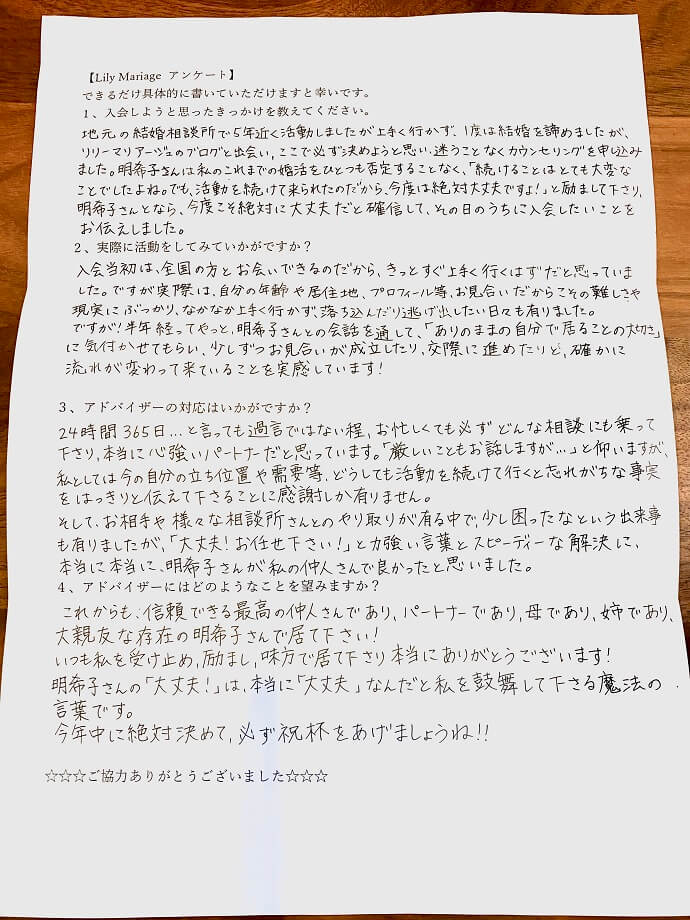 【Lily Mariage アンケート】
できるだけ具体的に書いていただけますと幸いです。
１、入会しようと思ったきっかけを教えてください。
地元の結婚相談所で5年近く活動しましたが上手く行かず、1度は結婚を諦めましたが、
リリーマリアージュのブログと出会い、ここで必ず決めようと思い、迷うことなくカウンセリングを申し込み
ました。明希子さんは私のこれまでの婚活をひとつも否定することなく、「続けることはとても大変な
ことでしたよね。でも、活動を続けて来られたのだから、今度は絶対大丈夫ですよ!」と励まして下さり、
明希子さんとなら、今度こそ絶対に大丈夫だと確信して、その日のうちに入会したいことを
お伝えしました。
２、実際に活動をしてみていかがですか？
入会当初は、全国の方とお会いできるのだから、きっとすぐ上手く行くはずだと思っていま
した。ですが実際は、自分の年齢や居住地、プロフィール等、お見合いだからこその難しさや
現実にぶつかり、なかなか上手く行かず、落ち込んだり逃げ出したい日々も有りました。
ですが!半年経ってやっと、明希子さんとの会話を通して、「ありのままの自分で居ることの大切さ」
に気付かせてもらい、少しずつお見合いが成立したり、交際に進めたりと、確かに
流れが変わって来ていることを実感しています!
３、アドバイザーの対応はいかがですか？
24時間365日…と言っても過言ではない程、お忙しくても必ずどんな相談にも乗って
下さり、本当に心強いパートナーだと思っています。「厳しいこともお話しますが…」と仰いますが、
私としては今の自分の立ち位置や需要等、どうしても活動を続けて行くと忘れがちな事実
をはっきりと伝えて下さることに感謝しか有りません。
そして、お相手や様々な相談所さんとのやり取りが有る中で、少し困ったなという出来事
も有りましたが、「大丈夫!お任せ下さい!」と力強い言葉とスピーディーな解決に、
本当に本当に、明希子さんが私の仲人さんで良かったと思いました。
４、アドバイザーにはどのようなことを望みますか？
これからも、信頼できる最高の仲人さんであり、パートナーであり、母であり、姉であり、
大親友な存在の明希子さんで居て下さい!
いつも私を受け止め、励まし、味方で居て下さり本当にありがとうございます!
明希子さんの「大丈夫!」は、本当に「大丈夫」なんだと私を鼓舞して下さる魔法の
言葉です。
今年中に絶対決めて、必ず祝杯をあげましょうね!!
☆☆☆ご協力ありがとうございました☆☆☆